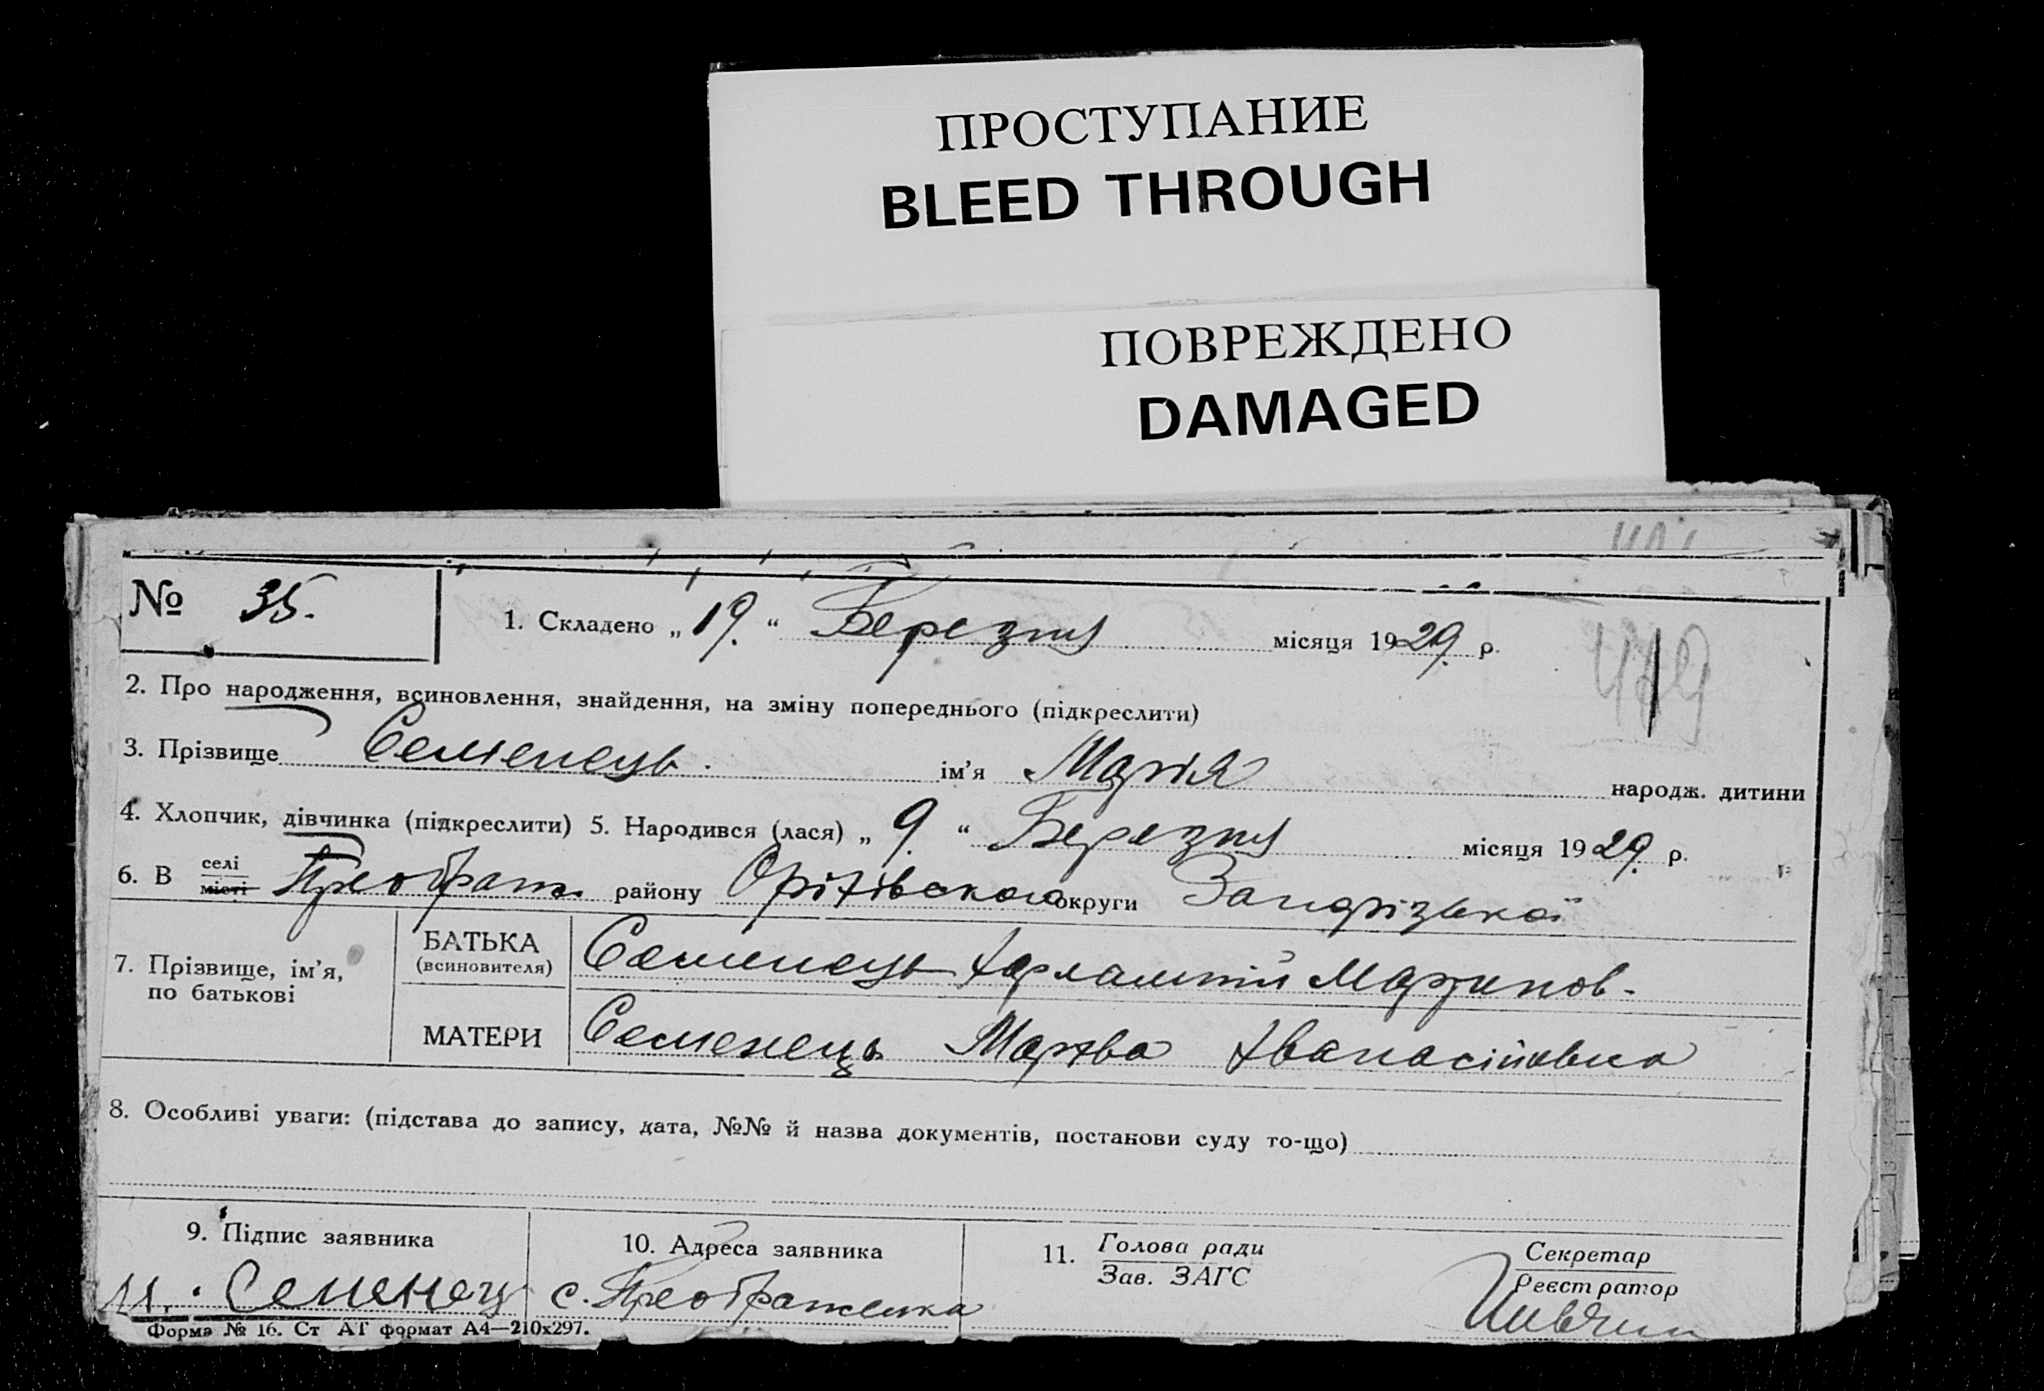 ПРОСТУПАНИЕ
BLEED THROUGH
ПОВРЕЖДЕНО
DAMAGED
№ 35.
1. Складено „19.“ Березня місяця 1929. р.
479
2. Про народження, всиновлення, знайдення, на зміну попереднього (підкреслити)
3. Прізвище Семенець. ім’я Марія народж. дитини
4. Хлопчик, дівчинка (підкреслити) 5. Народився (лася) „9.“ Березня місяця 1929. р.
6. В селі місті Преображ. району Оріхівского округи Запорізької
7. Прізвище, ім’я, по батькові
БАТЬКА (всиновителя) Семенець Харлампій Мартинов-
МАТЕРИ Семенець Марфа Афанасіївна
8. Особливі уваги: (підстава до запису, дата, №№ й назва документів, постанови суду то-що)
9. Підпис заявника
10. Адреса заявника
11. Голова ради
Зав. ЗАГС
Секретар
Реєстратор
Семенец
с. Преображенка
Форма № 16. Ст АТ формат А4—210х297.